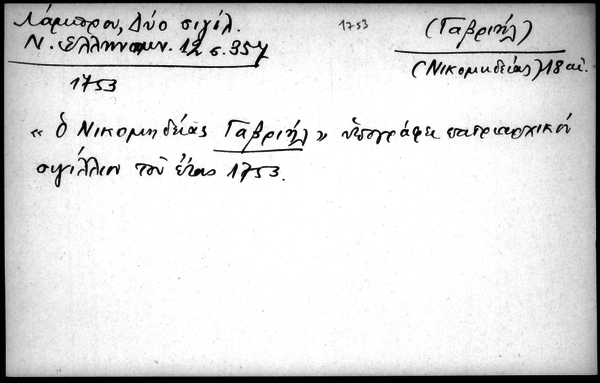 Λάμπρου, Δύο σιγίλ.
Ν. Ελληνομν. 12 σ. 357
1753
1753
(Γαβριήλ)
(Νικομηδείας) 18 αἰ.
« ὁ Νικομηδείας Γαβριήλ » ὑπογράφει πατριαρχικόν
σιγίλλιον τοῦ ἔτους 1753.